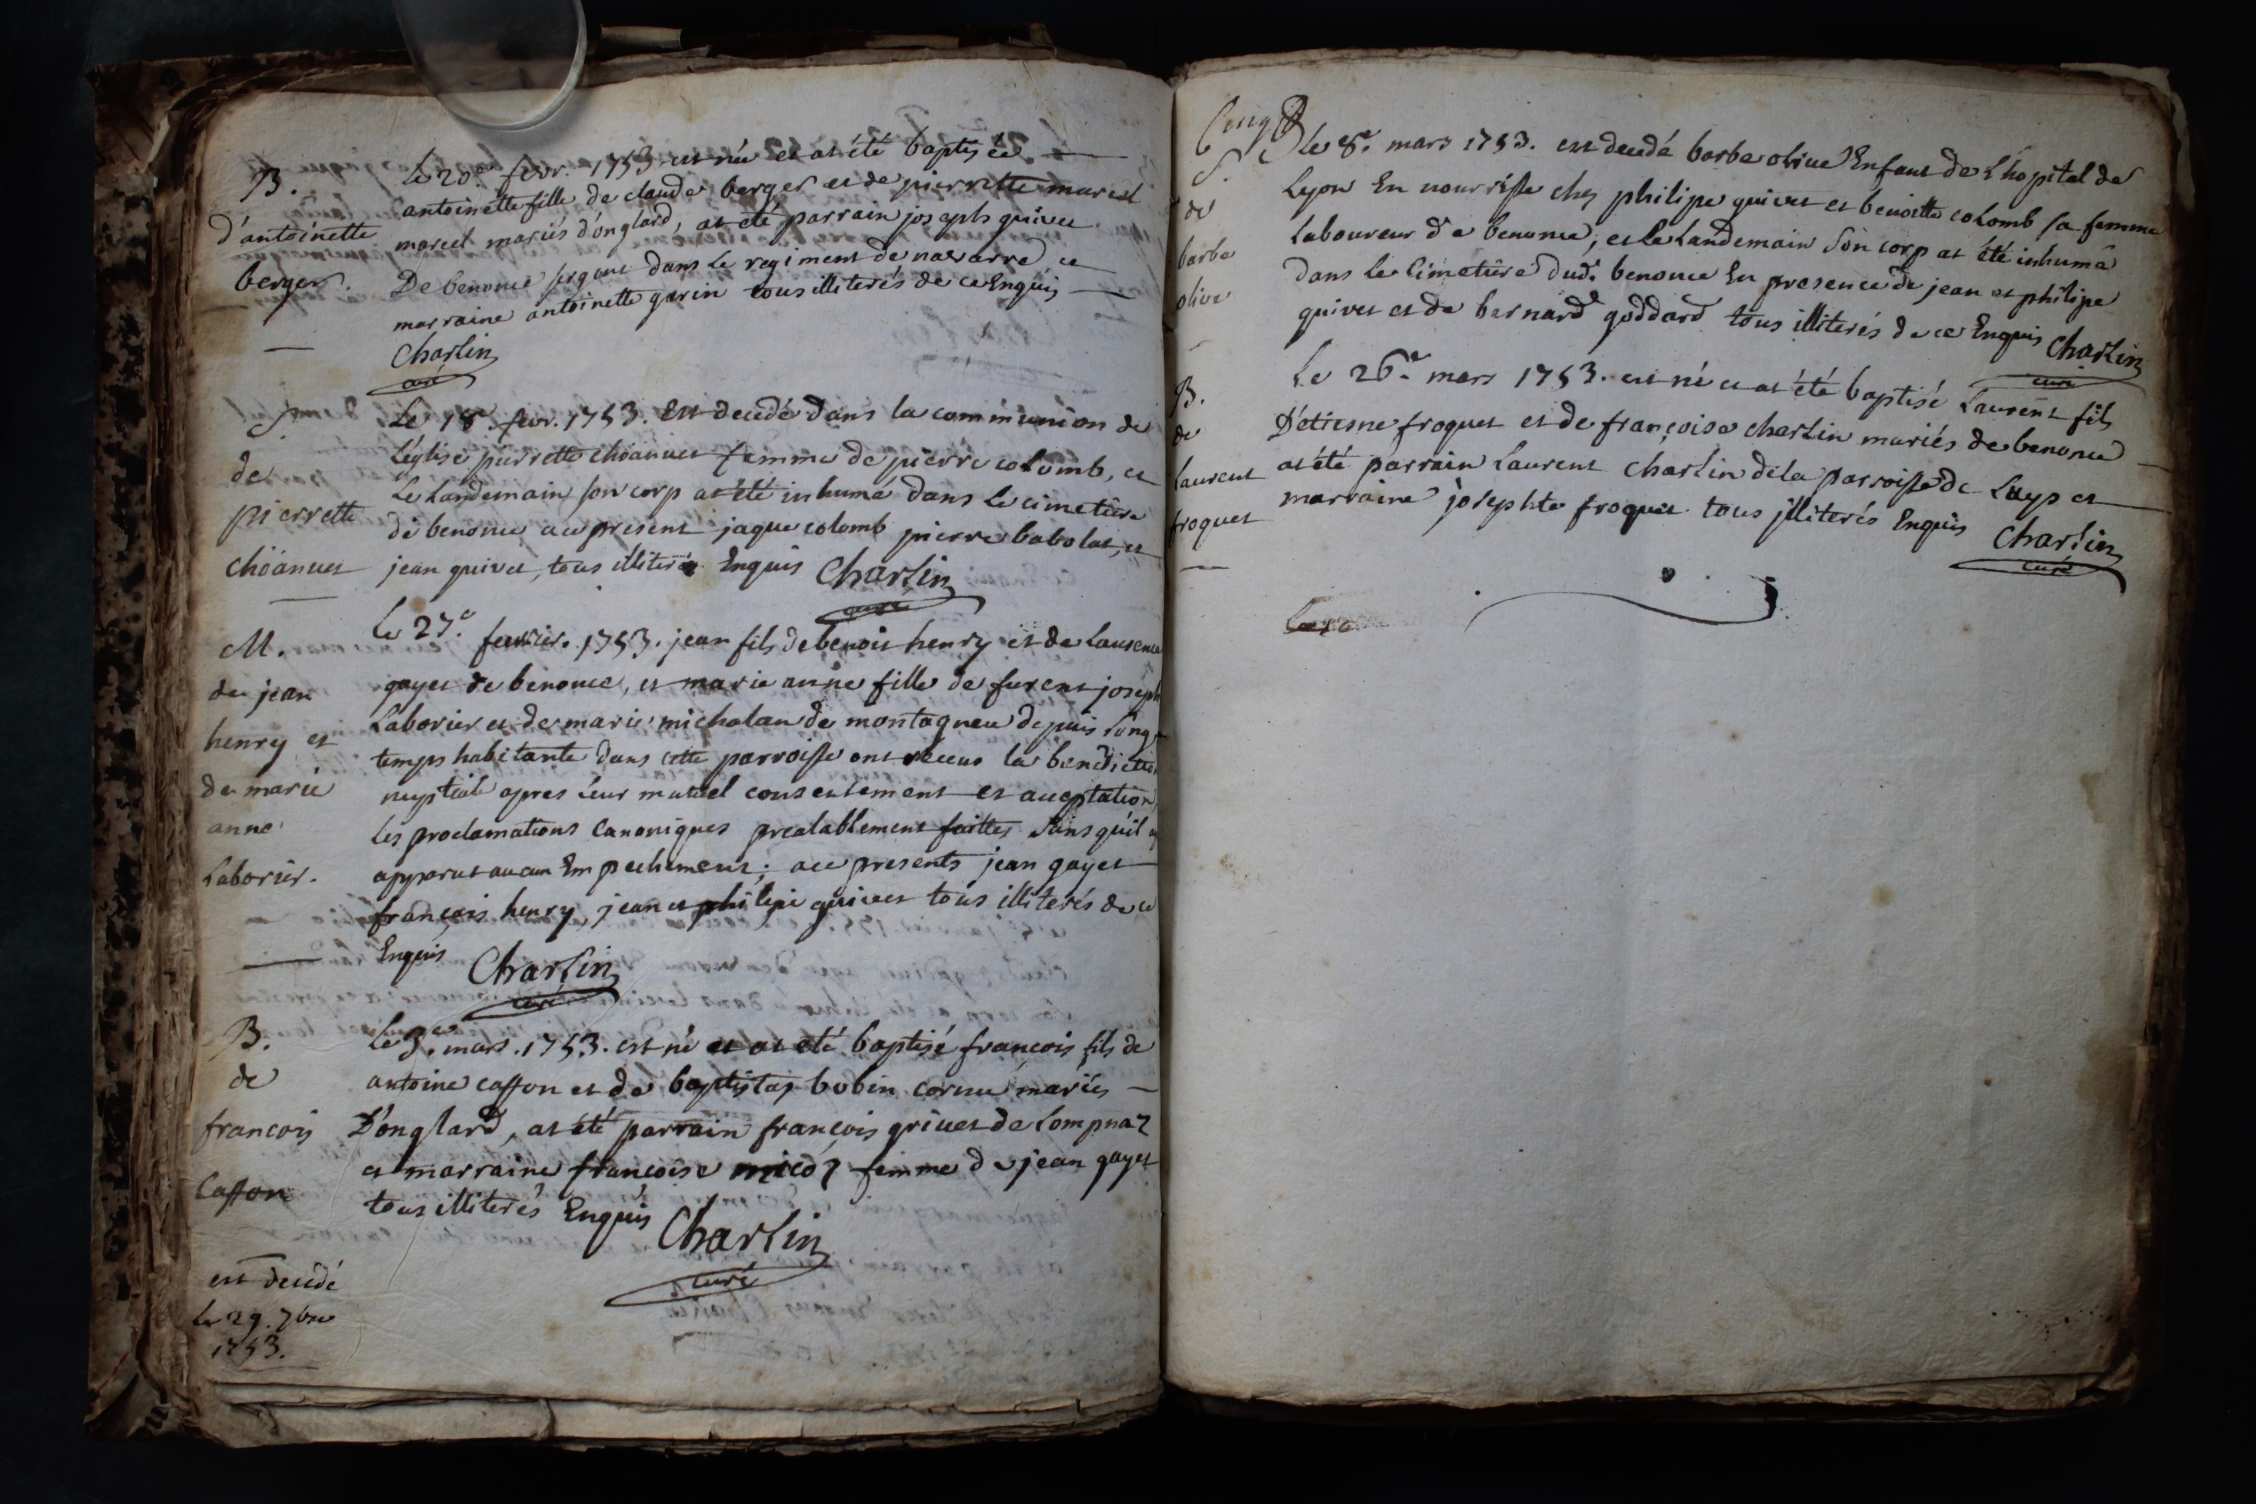 B.
d'antoinette
berger.
Le 20e. fevr. 1753. est née et at été baptisée
antoinette fille de claude berger et de pierrette marcel
marcel mariés d'onglard, at été parrain joseph quivet
De benonce sergent dans Le regiment de navarre et
marraine antoinette garin tous illiterés de ce Enquis
Charlin
curé
S.
de
pierrette
chöanuet
Le 18e. fevr. 1753. Est decedé dans la communion de
L'église pierrette chöanuet femme de pierre colomb, et
Le Landemain son corp at été inhumé dans Le cimetière
de benonce a ce present jaque colomb pierre babolat, et
jean quivet, tous illiterés Enquis Charlin
curé
M.
de jean
henry et
de marie
anne
Laborier.
Le 27e. fevrier. 1753. jean fils de benoit henry et de Laurence
gayet de benonce, et marie anne fille de furent joseph
Laborier et de marie michalan de montagneu depuis long
temps habitante dans cette parroisse ont receus la benediction
nuptiale apres leur mutuel consentement et acceptation
les proclamations canoniques prealablement faittes sans qu'il
apparut aucun Empechement; a ce presents jean gayet
françois henry, jean et philipe quivet tous illiterés de ce
Enquis Charlin
curé
B.
de
francois
Casson
est decedé
Le 29. 7bre
1753.
Le 3e. mars. 1753. est né et at été baptisé francois fils de
antoine casson et de baptistaz bobin cornu mariés
D'onglard, at été parrain françois grivet de Lompnaz
et marraine françoise micoz femme de jean gayet
tous illiterés Enquis Charlin
curé
S.
de
barbe
olive
le 8e. mars 1753. est decedé barbe olive Enfant de L'hopital de
Lyon En nourrisse ches philipe quivet et benoitte colomb sa femme
Laboureur de benonce; et Le Landemain son corp at été inhumé
dans Le cimetière dudt. benonce En presence de jean et philipe
quivet et de bernard goddard tous illiterés de ce Enquis Charlin
curé
B.
de
Laurent
froquet
Le 26e. mars 1753. est né et at été baptisé Laurent fils
D'etiesne froquet et de françoise charlin mariés de benonce
at été parrain Laurent charlin de la parroisse de Luys et
marraine josephte froquet tous illiterés Enquis Charlin
curé